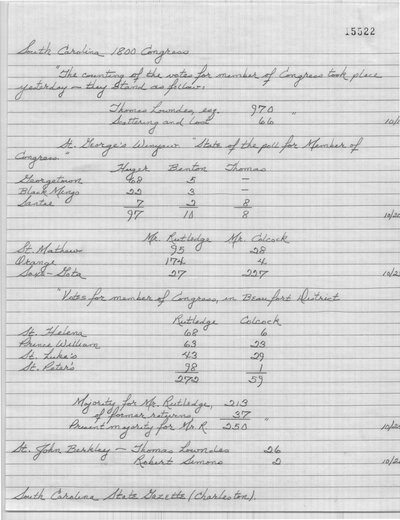 15522
South Carolina 1800 Congress
"The counting of the votes for member of Congress took place
yesterday - they stand as follow:
Thomas Lowndes, esq. 970 "
Scattering and lost 66 10/1
St. George's Winyaw "State of the poll for Member of
Congress."
Huger Benton Thomas
Georgetown 68 5 -
Black Mingo 22 3 -
Santee 7 2 8
97 10 8 10/20
Mr. Rutledge Mr. Colcock
St. Mathews 95 28
Orange 174 4
Saxe-Gota 27 227 10/2
"Votes for member of Congress, in Beaufort District
Rutledge Colcock
St. Helena 68 6
Prince William 63 23
St. Luke's 43 29
St. Peter's 98 1
272 59
Majority for Mr. Rutledge, 213
of former returns 37 "
Present majority for Mr. R 250 10/2
St. John Berkley - Thomas Lowndes 26
" Robert Simons 2 10/2
South Carolina State Gazette (Charleston).